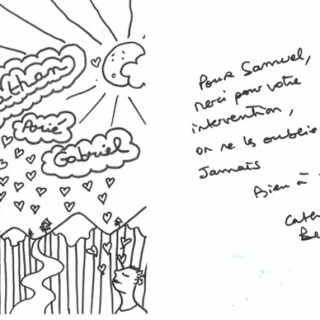 athan
Gabriel
Pour Samuel,
merci pour votre
intervention,
on ne les oublie
Jamais
Bien à
Cath
Be